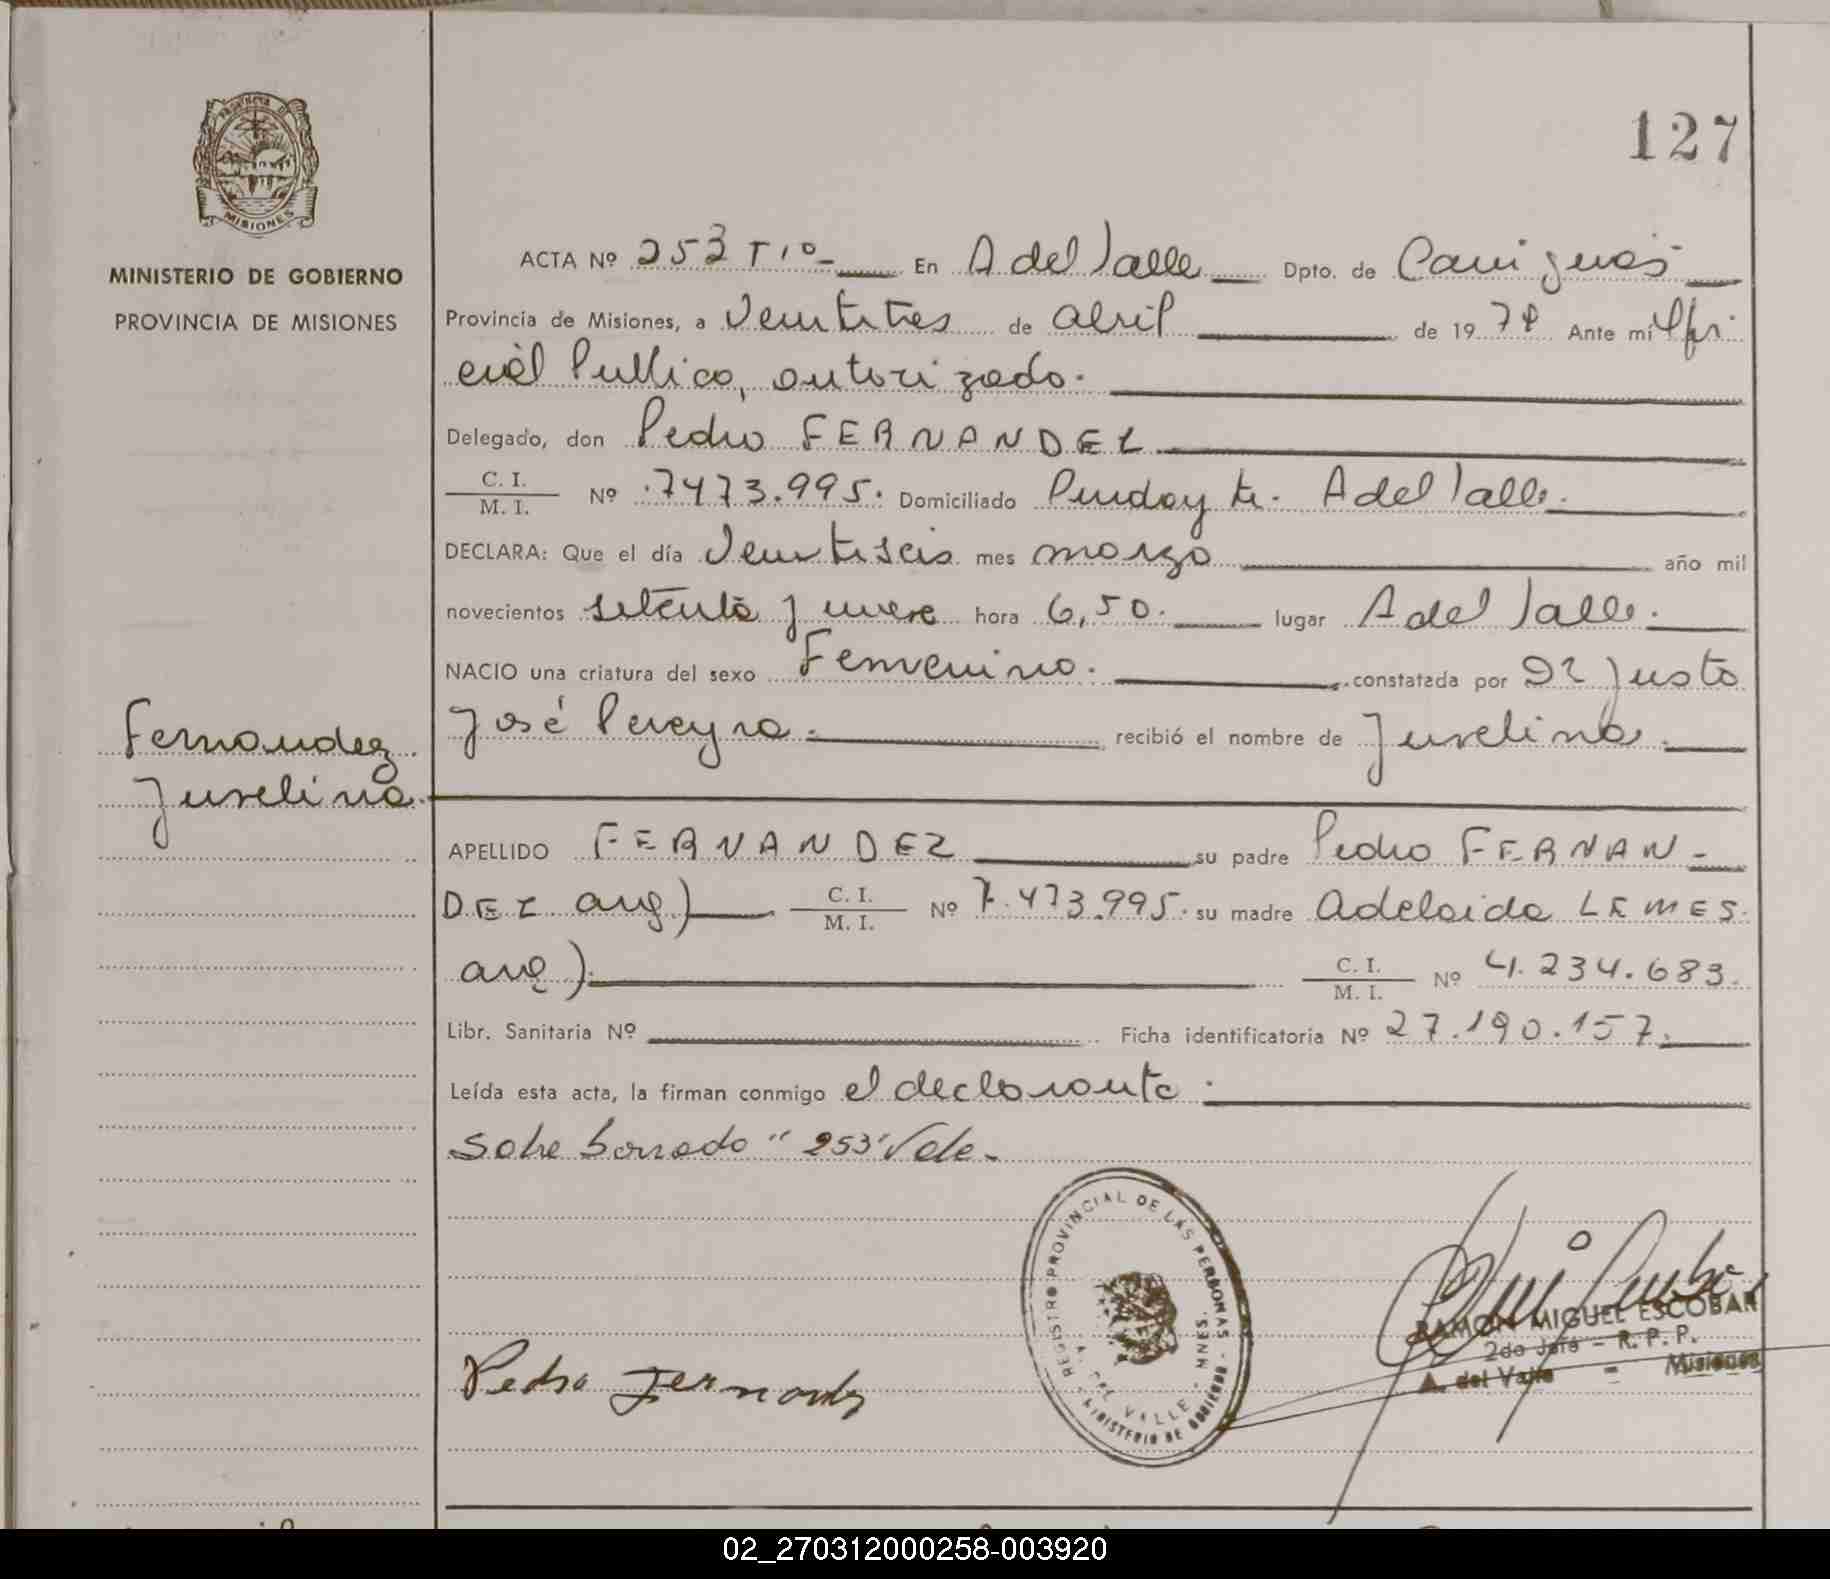 127
MINISTERIO DE GOBIERNO
PROVINCIA DE MISIONES
MISIONES
ACTA Nº 253 Tº 1º En A del Valle Dpto. de Cainguás
Provincia de Misiones, a Veintitres de abril de 1979 Ante mí Ofi
cial Publico, autorizado.
Delegado, don Pedro FERNANDEZ
C. I. / M. I. Nº 7473.995. Domiciliado Pindayti. A del Valle.
DECLARA: Que el día Veintiseis mes marzo año mil
novecientos setenta y nueve hora 6,50. lugar A del Valle.
NACIO una criatura del sexo Femenino. constatada por Dr Justo
José Pereyra. recibió el nombre de Juvelina.
Fernandez
Juvelina.
APELLIDO FERNANDEZ su padre Pedro FERNAN-
DEZ arg) C. I. / M. I. Nº 7.473.995. su madre Adelaida LEMES.
arg) C. I. / M. I. Nº 4.234.683.
Libr. Sanitaria Nº Ficha identificatoria Nº 27.190.157.
Leída esta acta, la firman conmigo el declarante.
Sobre borrado "253" Vale.
REGISTRO PROVINCIAL DE LAS PERSONAS - MINISTERIO DE GOBIERNO
A. DEL VALLE - MNES.
Pedro Fernandez
RAMON MIGUEL ESCOBAR
2do Jefe - R. P. P.
A. del Valle - Misiones
02_270312000258-003920